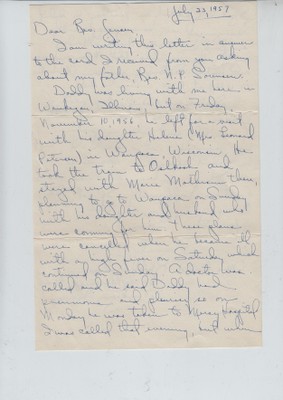 July 23, 1957
Dear Rev. Jensen
I am writing this letter in answer
to the card I received from you asking
about my father, Rev. H. P. Sorensen
Daddy was living with me here in
Waukegan, Illinois, but on Friday,
November 10, 1956 he left for a visit
with his daughter Helene (Mrs Leonard
Petersen) in Waupaca, Wisconsin. He
took the train to Oshkosh and
stayed with Marie Mathiesen there,
planning to go to Waupaca on Sunday
with his daughter and husband who
were coming for him. These plans
were cancelled when he became ill
with a high fever on Saturday which
continued on Sunday. A doctor was
called and he said Daddy had
pneumonia and pleurisy so on
Monday he was taken to Mercy Hospital
I was called that evening, but when